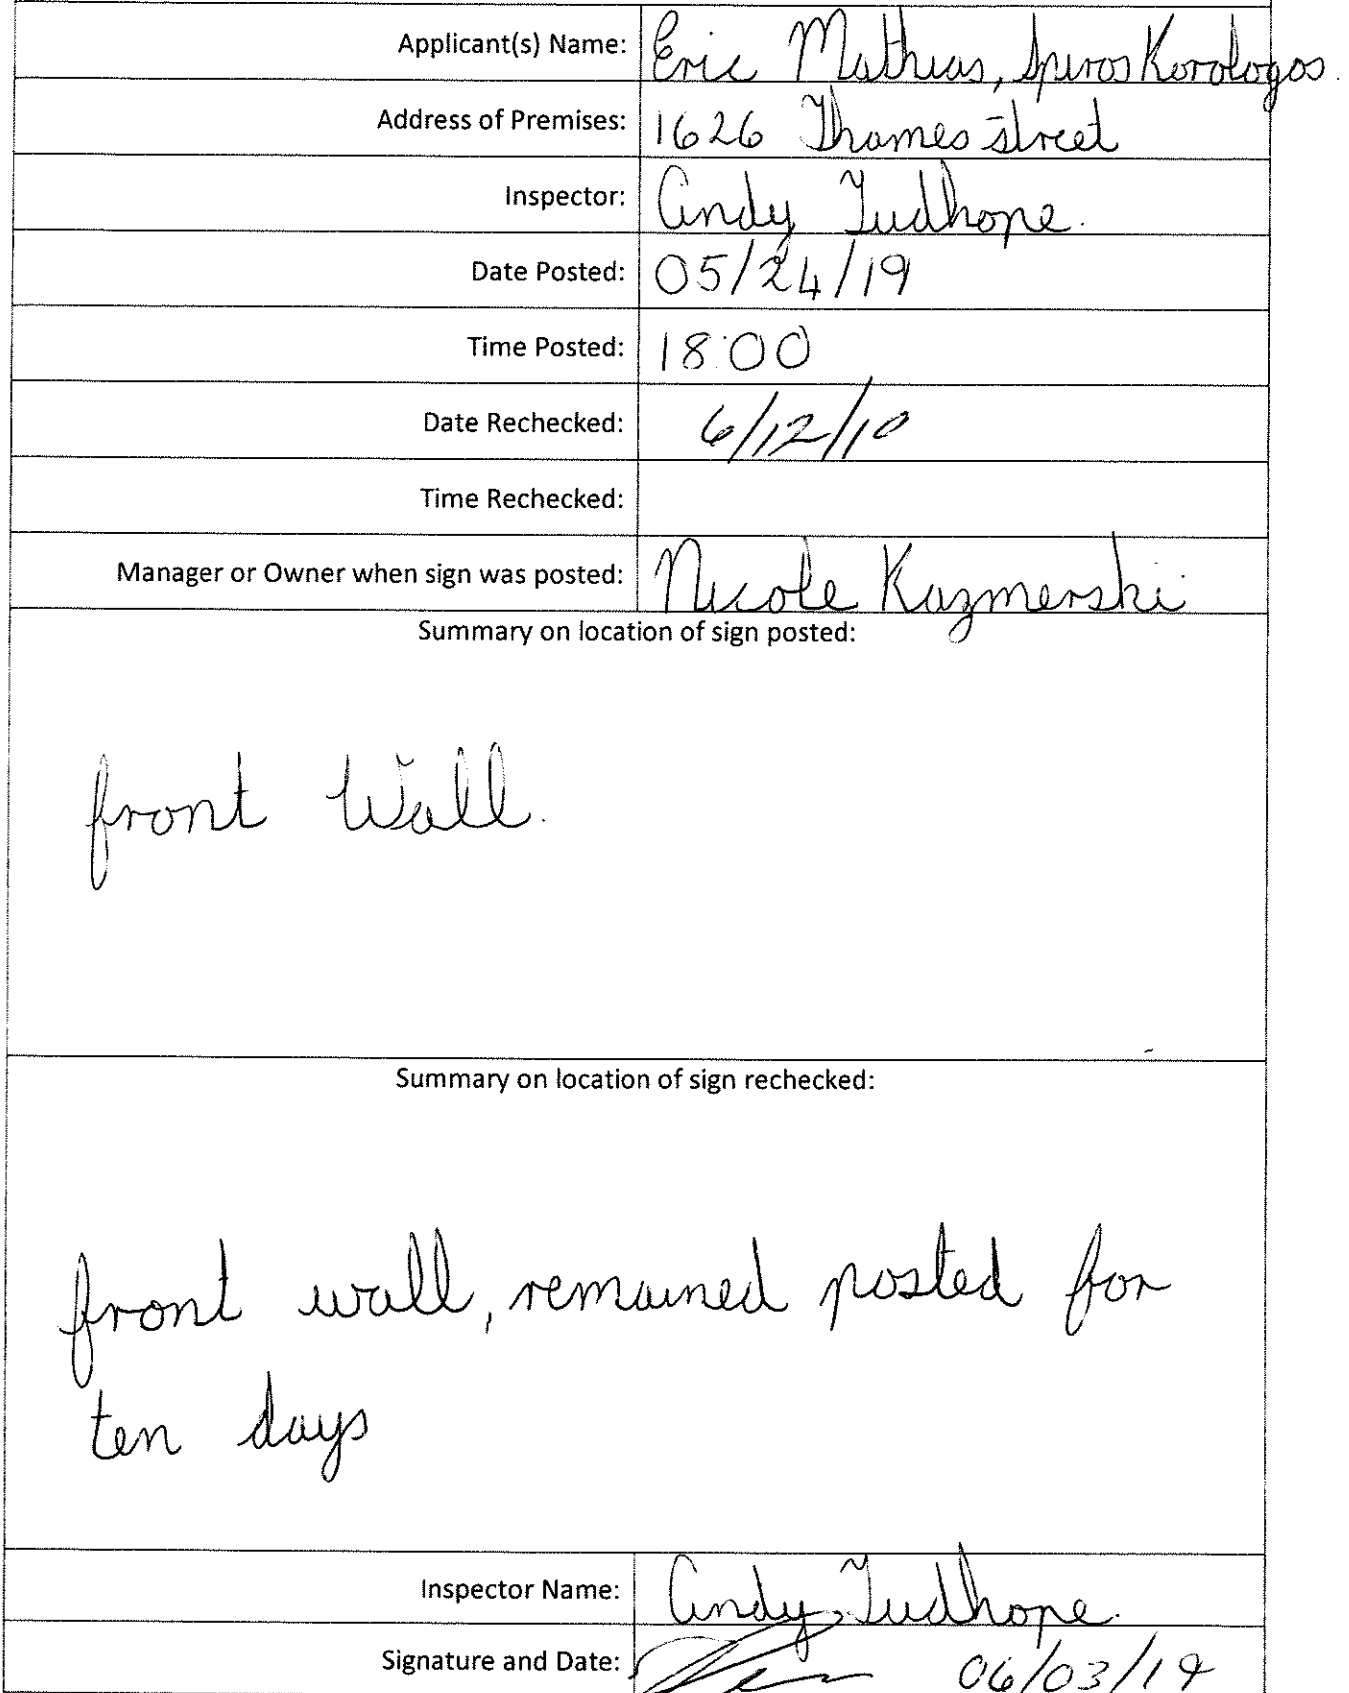 Applicant(s) Name: Eric Mathias, Spiros Korologos.
Address of Premises: 1626 Thames street
Inspector: Andy Tudhope.
Date Posted: 05/24/19
Time Posted: 18:00
Date Rechecked: 6/12/10
Time Rechecked:
Manager or Owner when sign was posted: Nicole Kazmerski
Summary on location of sign posted:
front Wall.
Summary on location of sign rechecked:
front wall, remained posted for
ten days
Inspector Name: Andy Tudhope.
Signature and Date: 06/03/19